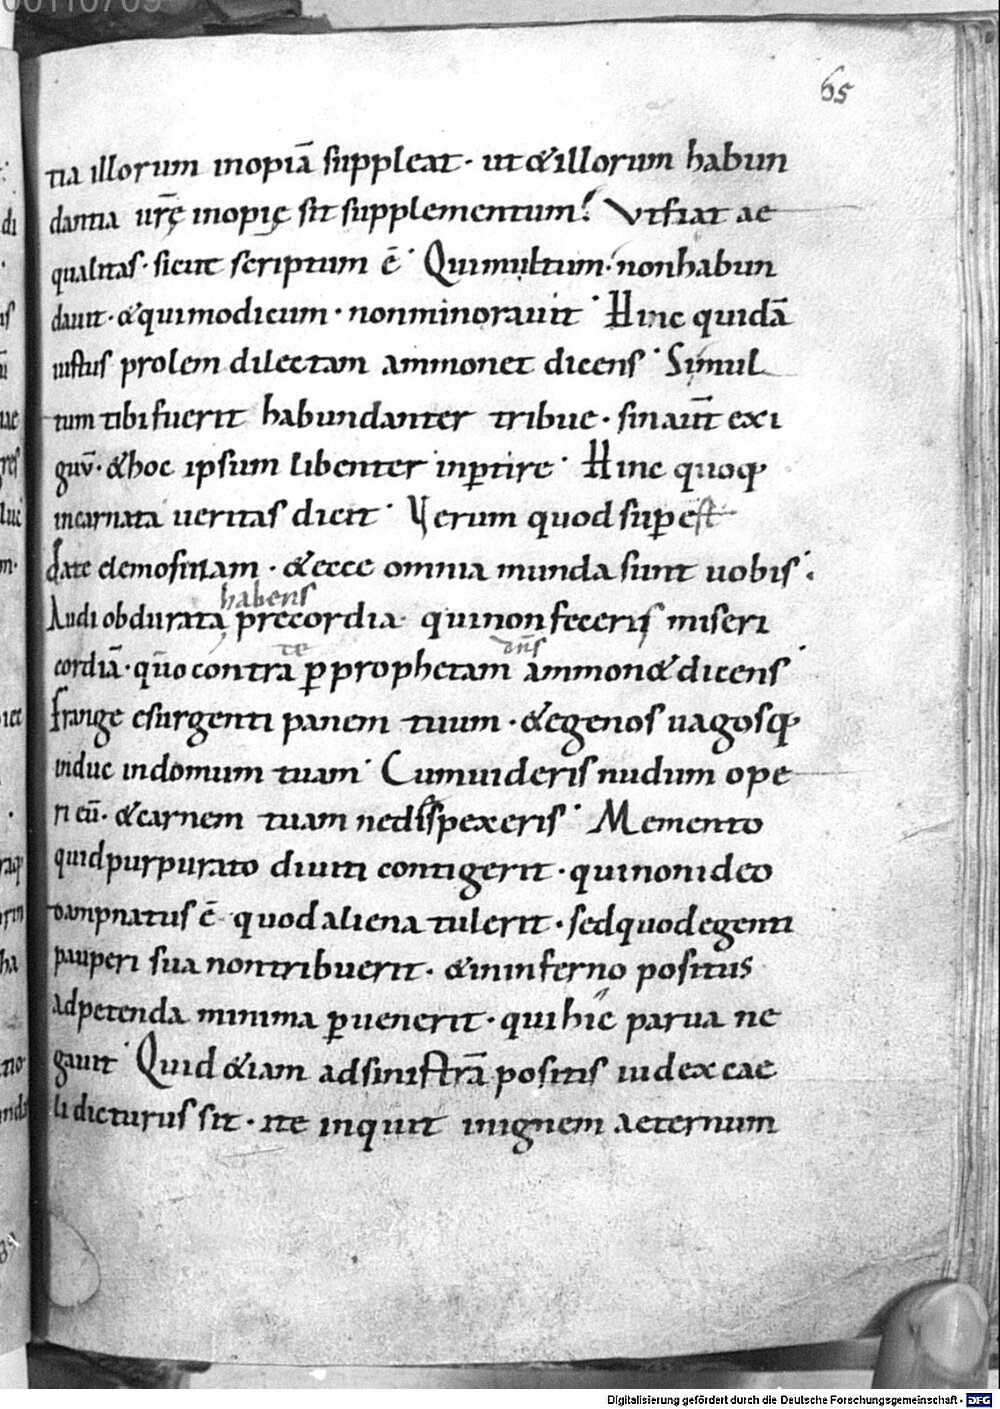 65
tia illorum inopiā suppleat · ut & illorum habun
dantia urę̄ inopię sit supplementum? Vt fiat ae
qualitas · sicut scriptum ē · Qui multum · non habun
dauit · & qui modicum · non minorauit · Hinc quidā
iustus prolem dilectam ammonet dicens · Si mul
tum tibi fuerit habundanter tribue · sin aut̄ exi
guū · & hoc ipsum libenter inptire · Hinc quoq;
incarnata ueritas dicit · Verum quod sup est
date elemosinam · & ecce omnia munda sunt uobis ·
habens
Audi obdurata precordia · qui non feceris miseri
te dn̄s
cordiā · quō contra p prophetam ammon& dicens ·
frange esurgenti panem tuum · & egenos uagosq;
induc in domum tuam · Cum uideris nudum ope
ri eū · & carnem tuam ne dispexeris · Memento
quid purpurato diuiti contigerit · qui non ideo
dampnatus ē · quod aliena tulerit · sed quod egenti
pauperi sua non tribuerit · & in inferno positus
ad petenda minima puenerit · qui hic parua ne
gauit · Quid & iam ad sinistrā positis iudex cae
li dicturus sit · ite inquit in ignem aeternum
Digitalisierung gefördert durch die Deutsche Forschungsgemeinschaft - DFG